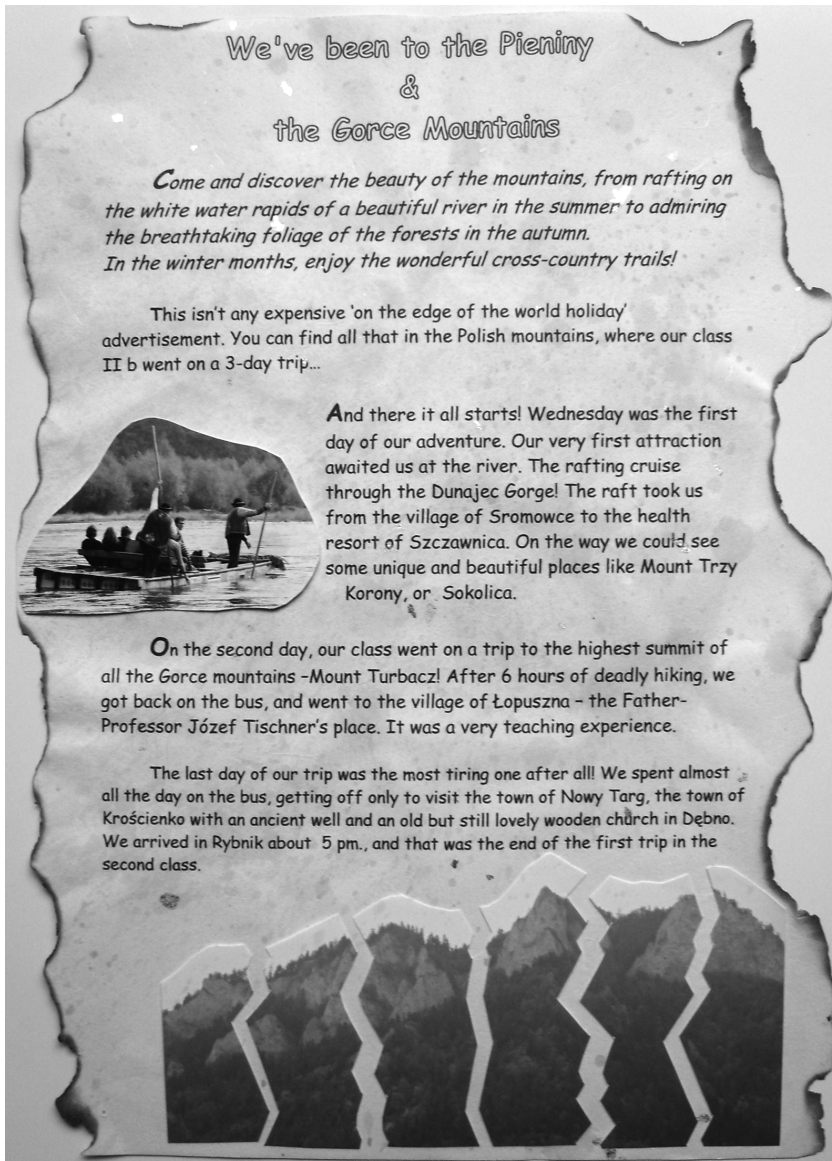 We've been to the Pieniny
&
the Gorce Mountains
Come and discover the beauty of the mountains, from rafting on
the white water rapids of a beautiful river in the summer to admiring
the breathtaking foliage of the forests in the autumn.
In the winter months, enjoy the wonderful cross-country trails!
This isn't any expensive 'on the edge of the world holiday'
advertisement. You can find all that in the Polish mountains, where our class
II b went on a 3-day trip...
And there it all starts! Wednesday was the first
day of our adventure. Our very first attraction
awaited us at the river. The rafting cruise
through the Dunajec Gorge! The raft took us
from the village of Sromowce to the health
resort of Szczawnica. On the way we could see
some unique and beautiful places like Mount Trzy
Korony, or Sokolica.
On the second day, our class went on a trip to the highest summit of
all the Gorce mountains –Mount Turbacz! After 6 hours of deadly hiking, we
got back on the bus, and went to the village of Łopuszna – the Father-
Professor Józef Tischner's place. It was a very teaching experience.
The last day of our trip was the most tiring one after all! We spent almost
all the day on the bus, getting off only to visit the town of Nowy Targ, the town of
Krościenko with an ancient well and an old but still lovely wooden church in Dębno.
We arrived in Rybnik about 5 pm., and that was the end of the first trip in the
second class.